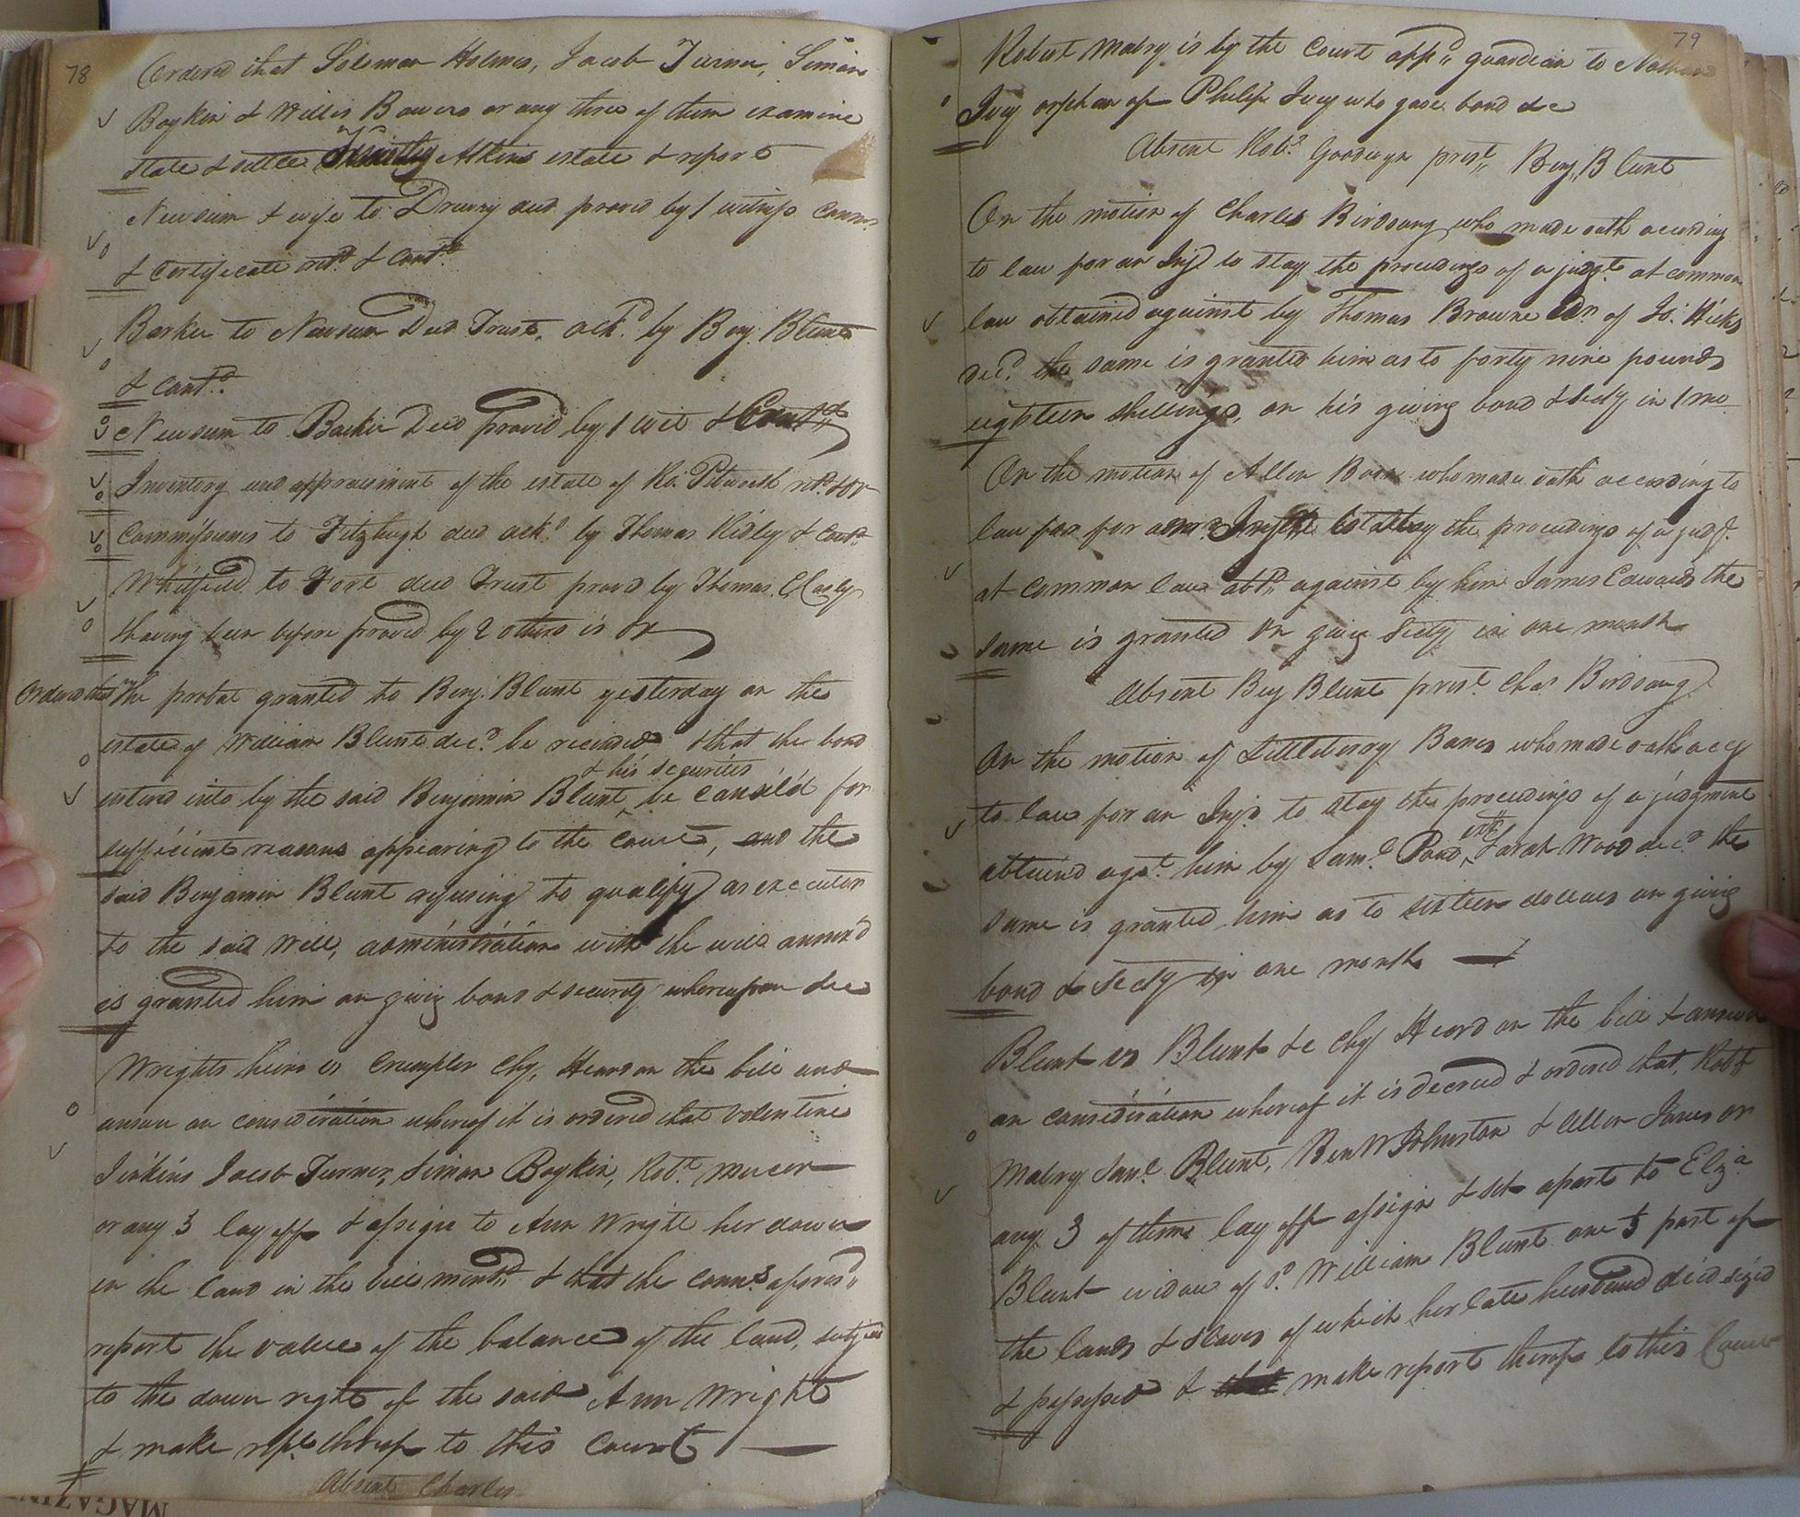 78
Ordered that Soloman Holmes, Jacob Turner, Simon
Boykin & Willis Bowers or any three of them examine
state & settle Atkins estate & report
Newsum & wife to Drewry deed proved by 1 witness Comn.
& Certificate retd. & contd.
Barker to Newsum Deed Trust, ackd. by Benj. Blunt
& contd.
Newsum to Barker Deed proved by 1 wit &
Inventory and appraisment of the estate of Ro. Pitway retd. & Or
Commissioners to Fitzhugh deed ackd. by Thomas Ridley & Contd.
Whitfield to Fort deed Trust proved by Thomas
& having been before proved by 2 others is Or
Ordered that the probat granted to Benj. Blunt yesterday on the
estate of William Blunt decd. be recinded & that the bond
& his securities
entered into by the said Benjamin Blunt ^ be cancel'd for
sufficient reasons appearing to the Court, and the
said Benjamin Blunt refusing to qualify as executor
to the said Will, administration with the will annex'd
is granted him on giving bond & security whereupon &c
Wrights heirs vs Crumpler Chy, Heard on the bill and
answer on consideration whereof it is ordered that Valentine
Jenkins Jacob Turner, Simon Boykin, Robt. Mercer
or any 3 lay off & assign to Ann Wright her dower
in the land in the bill mentd. & that the comrs. aforesd.
report the value of the balance of the land, subject
to the dower right of the said Ann Wright
& make rept. thereof to this Court
Absent Charles
79
Robert Mabry is by the Court appd. guardian to Nathan
Ivy orphan of Philip Ivey who gave bond &c
Absent Robt. Goodwyn prest. Benj. Blunt
On the motion of Charles Birdsong who made oath according
to law for an Injd to stay the proceedings of a judgt. at common
law obtained against by Thomas Browne of Js. Hicks
decd. the same is granted him as to forty nine pounds
eighteen shillings, on his giving bond & Secty in 1 mo
On the motion of Allen who made oath according to
law for for the proceedings of a judgt.
at common law obtd. against by him James Edwards the
same is granted on giving Secty in one month
Absent Benj Blunt prest. Chas. Birdsong
On the motion of Littleberry Banes who made oath accg
to law for an Injd. to stay the proceedings of a judgment
obtained agst. him by Saml. Pond, extr. Sarah Wood decd. the
same is granted him as to sixteen dollars on giving
bond & Secty in one month
Blunt vs Blunt &c Chy Heard on the bill & answer
on consideration whereof it is decreed & ordered that, Robt
Mabry Saml. Blunt, Ben W Johnston & Allen Jones or
any 3 of them lay off assign & set apart to Eliza.
Blunt widow of sd. William Blunt one 1/3 part of
the lands & slaves of which her late husband died seized
& possessed & make report thereof to this Court